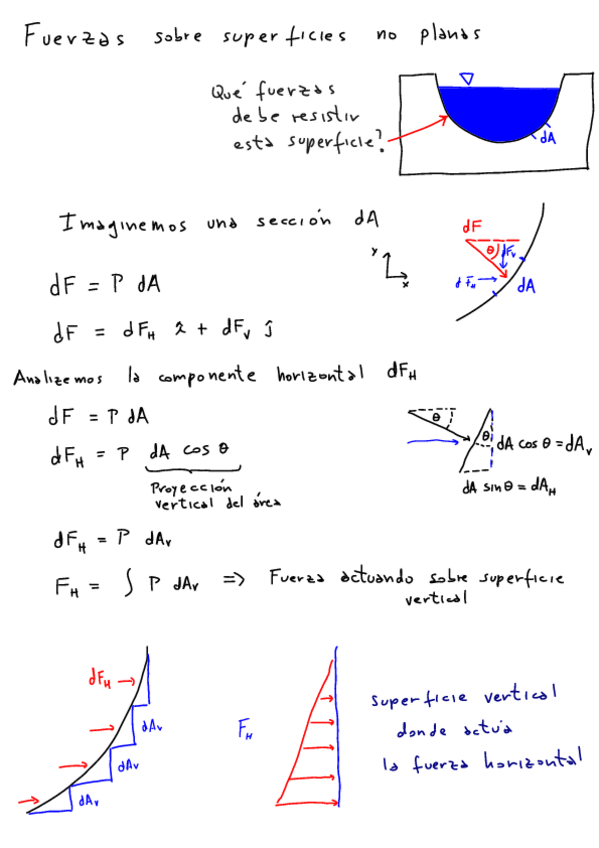 Fuerzas sobre superficies no planas
Qué fuerzas
debe resistir
esta superficie?
dA
Imaginemos una sección dA
dF
θ
dFv
dFH
dA
y
x
dF = P dA
dF = dFH î + dFv ĵ
Analizemos la componente horizontal dFH
dF = P dA
dFH = P dA cos θ
Proyección
vertical del área
θ
θ
dA cos θ = dAv
dA sin θ = dAH
dFH = P dAv
FH = ∫ P dAv => Fuerza actuando sobre superficie
vertical
dFH
dAv
dAv
dAv
FH
superficie vertical
donde actúa
la fuerza horizontal